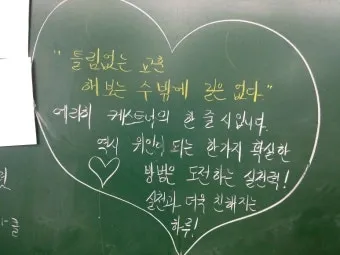 "틀림없는 교훈
해 보는 수 밖에 길은 없다."
에리히 케스트너의 한 줄 시입니다.
역시 위인이 되는 한가지 확실한
방법은 도전하는 실천력!
실천과 더욱 친해지는
하루!